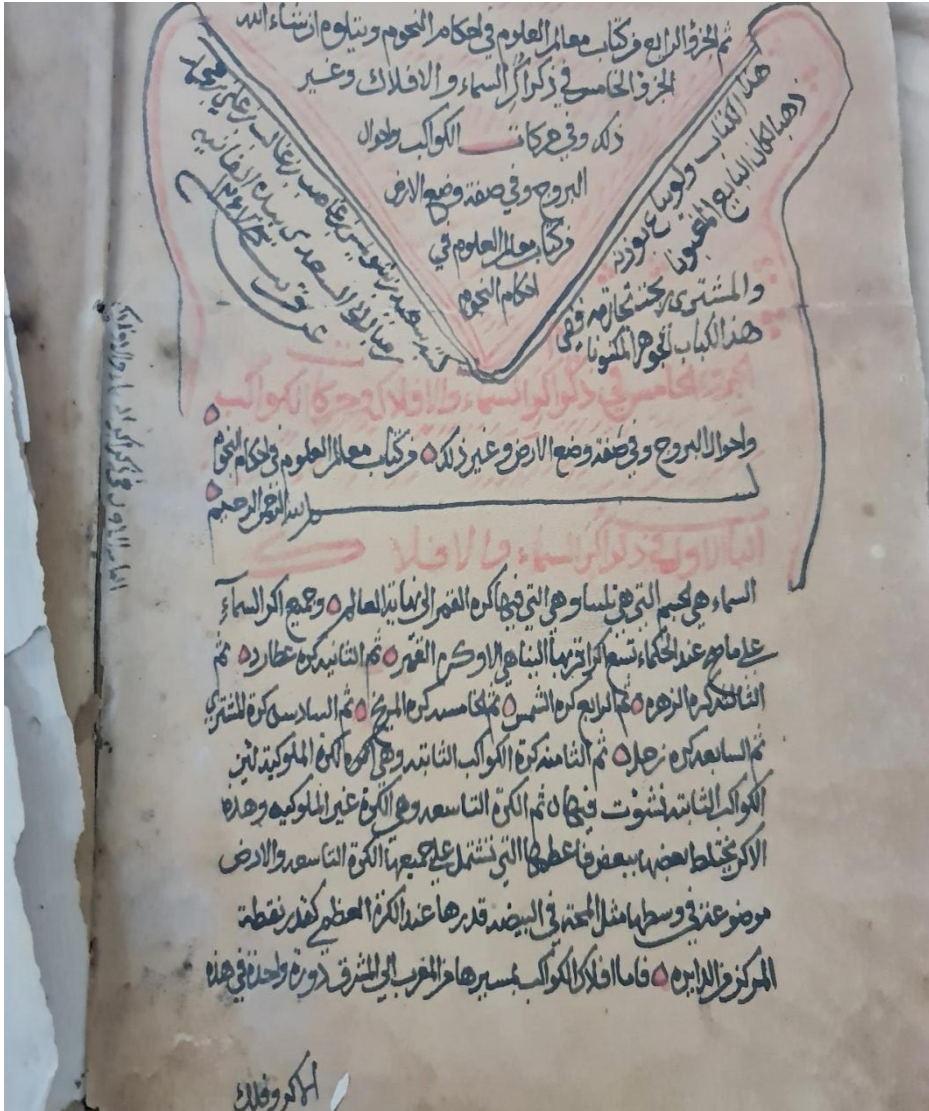 تم الجزء الرابع من كتاب معالم العلوم في احكام النجوم ويتلوه ان شاء الله
الجزء الخامس في ذكر اكر السماء والافلاك وغير
ذلك وفي حركات الكواكب واحوال
البروج وفي صفة وضع الارض
من كتاب معالم العلوم في
احكام النجوم
هذا الكتاب ولو يباع بوزنه
ذهبا لكان البايع المغبونا
والمشتري
هذا الكتاب الجوهر المكنونا
الجزء الخامس في ذكر اكر السماء والافلاك وحركات الكواكب
واحوال البروج وفي صفة وضع الارض وغير ذلك من كتاب معالم العلوم في احكام النجوم
بسم الله الرحمن الرحيم
الباب الاول في ذكر اكر السماء والافلاك
السماء هي الجسم التي هي تلينا وهي التي فيها كرة القمر الى نهاية العالم وجميع اكر السماء
على ما صح عند الحكماء تسع اكر اقربها الينا هي الاولى كرة القمر ثم الثانيه كرة عطارد ثم
الثالثه كرة الزهره ثم الرابع كرة الشمس ثم الخامسه كرة المريخ ثم السادس كرة المشتري
ثم السابعه كرة زحل ثم الثامنه كرة الكواكب الثابته وهي الكرة المكوكبه لئن
الكواكب الثابته فيها ثم الكرة التاسعه وهي الكرة غير المكوكبه وهذه
الاكر بعضها ببعض فاعظمها التي تشتمل على جميعها الكرة التاسعه والارض
موضوعة في وسطها مثل المحة في البيضه قدرها عند الكرة العظمى كقدر نقطة
المركز من الدايره فاما افلاك الكواكب بمسيرها من المغرب الى المشرق دورة واحدة في هذه
الاكر وفلك